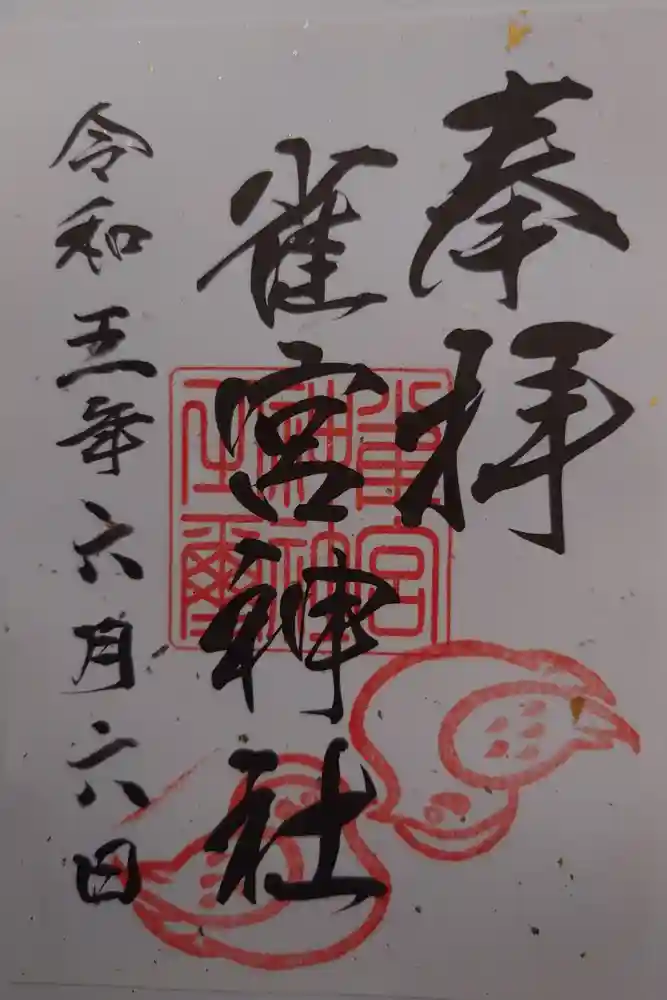 奉拝
雀宮神社
令和五年六月六日
雀宮
神社